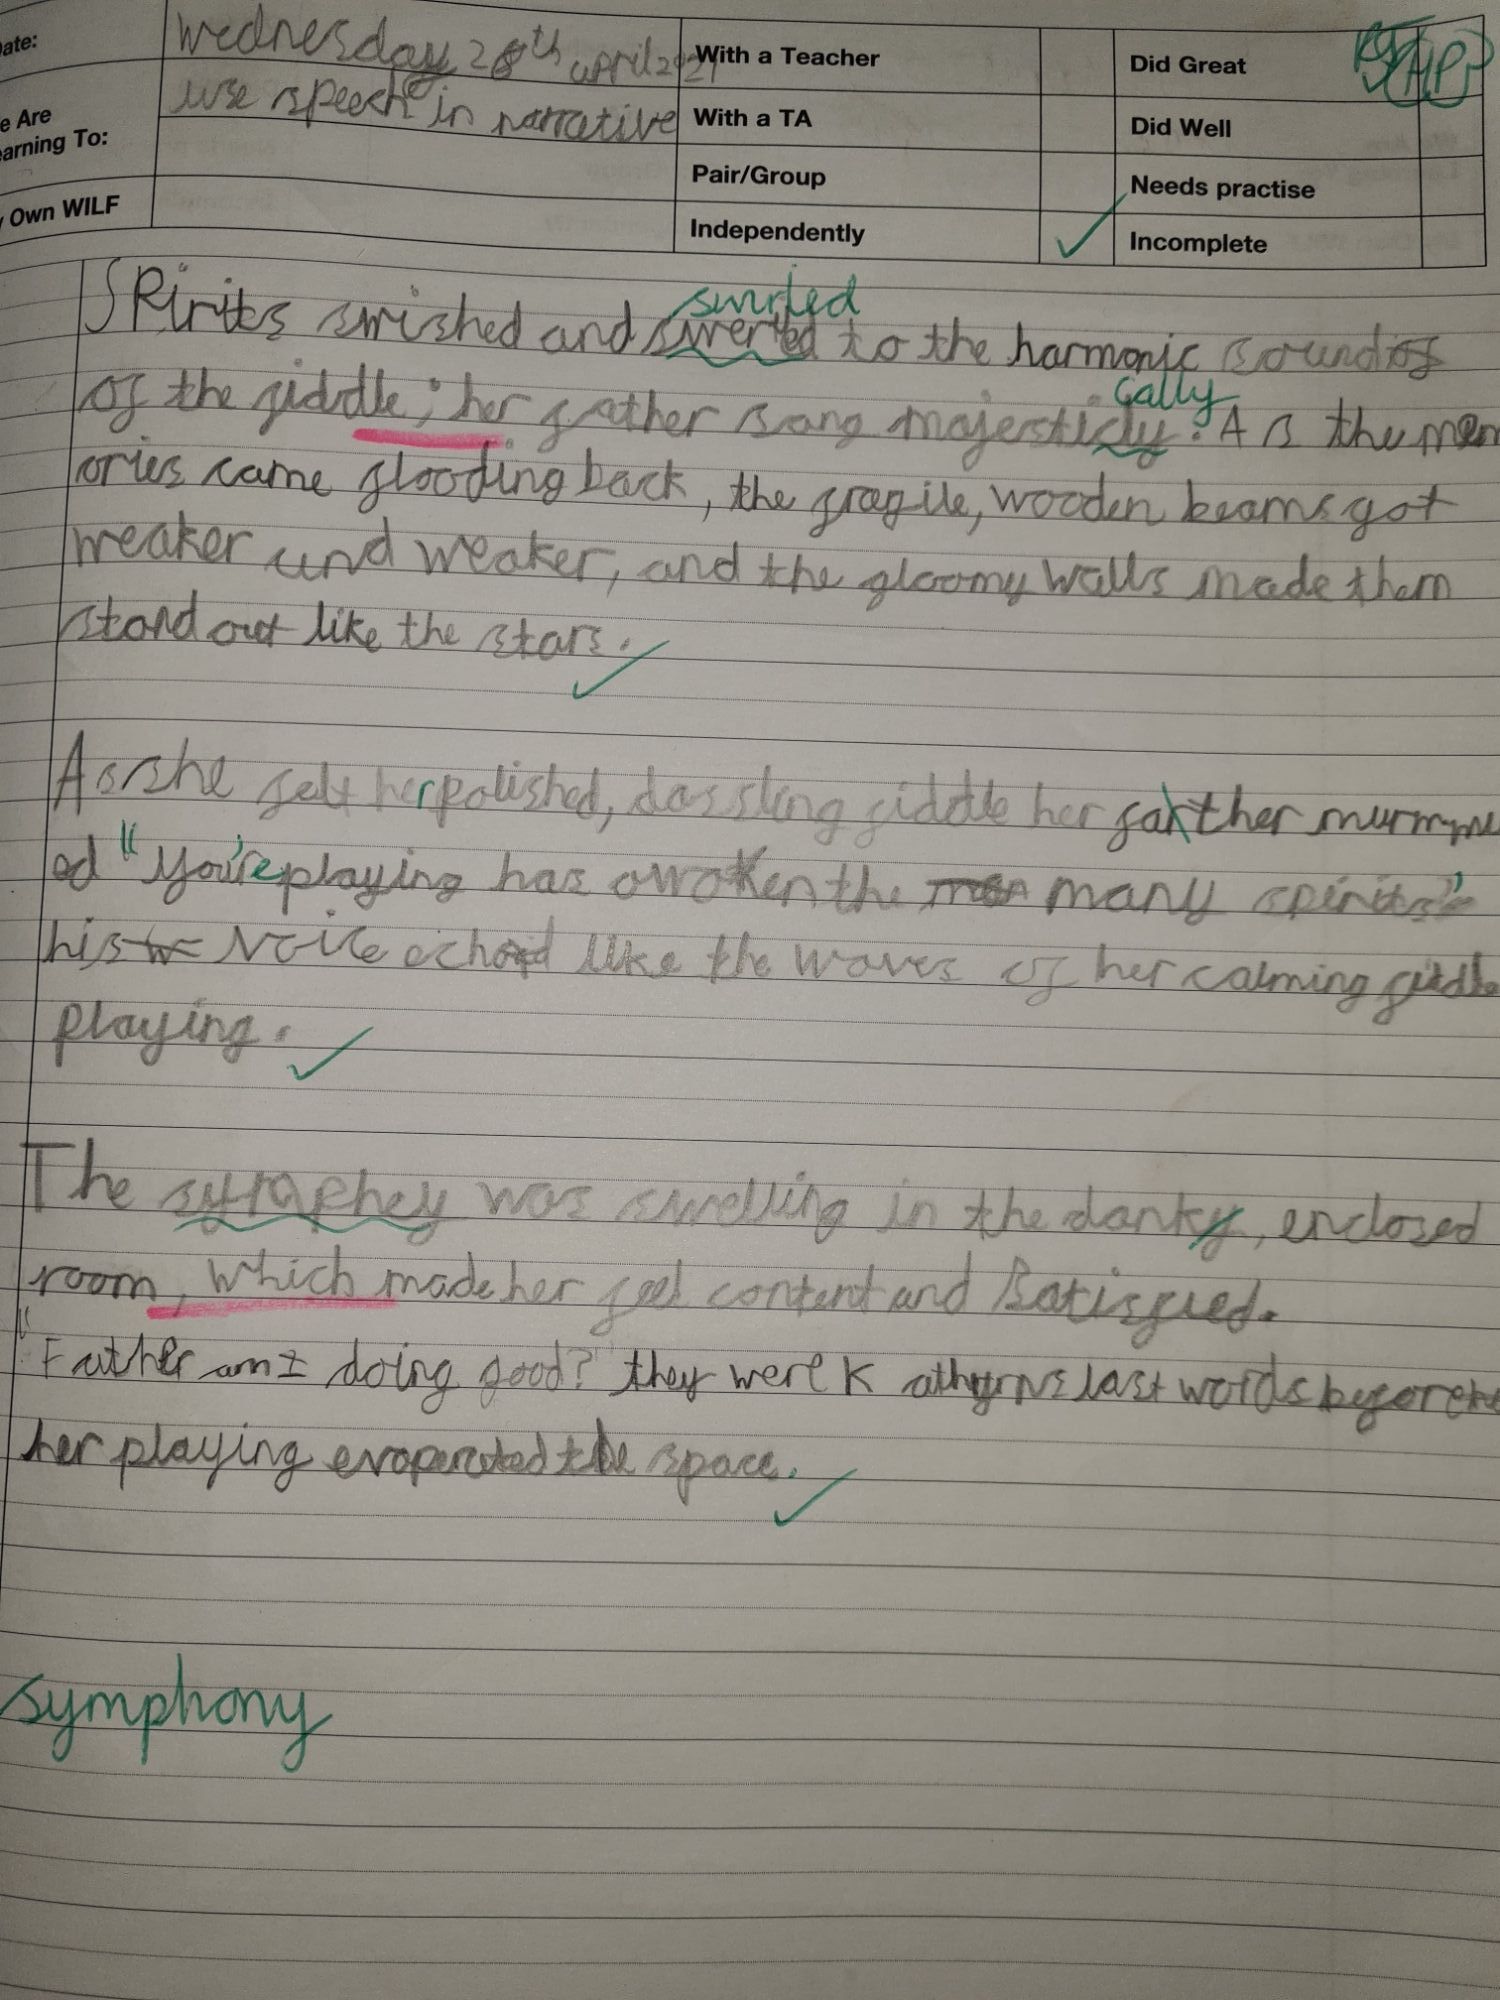 ate:
Wednesday 28th april 2021
With a Teacher
Did Great
e Are
arning To:
use speech in narrative
With a TA
Did Well
Pair/Group
Needs practise
Own WILF
Independently
Incomplete
swirled
SPirits swished and swerled to the harmonic sound of
cally
of the fiddle; her father sang majesticly. As the mem
ories came flooding back, the fragile, wooden beams got
weaker und weaker, and the gloomy walls made them
stand out like the stars.
As she felt her polished, dassling fiddle her father murmur
ed "You're playing has awoken the many spirits"
his voice echoed like the waves of her calming fiddle
playing.
The syraphey was swelling in the danky, enclosed
room, which made her feel content and Satisfied.
"Father am I doing good? they were Kathyrns last words before
her playing evaporated the space.
symphony